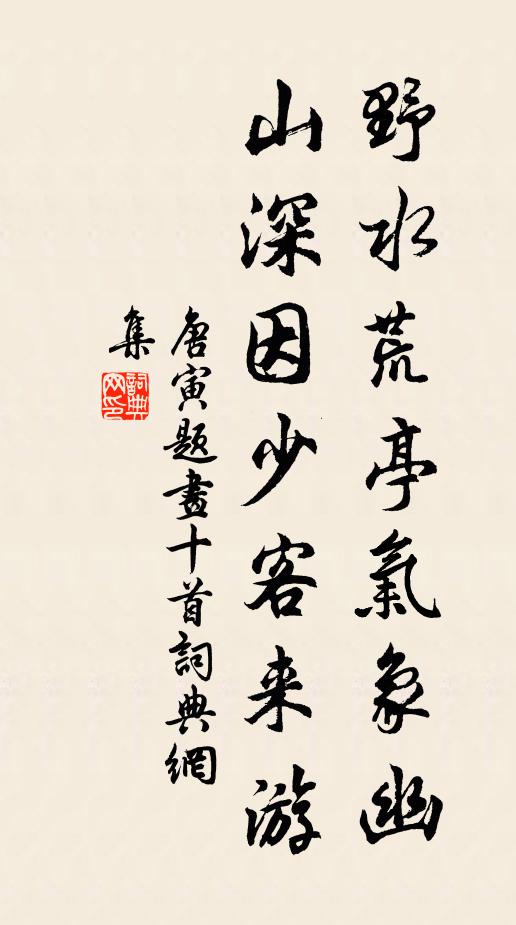 野水荒亭氣象幽
山深因少客来游
唐寅題畫十首詞典網
集
詞典
网印